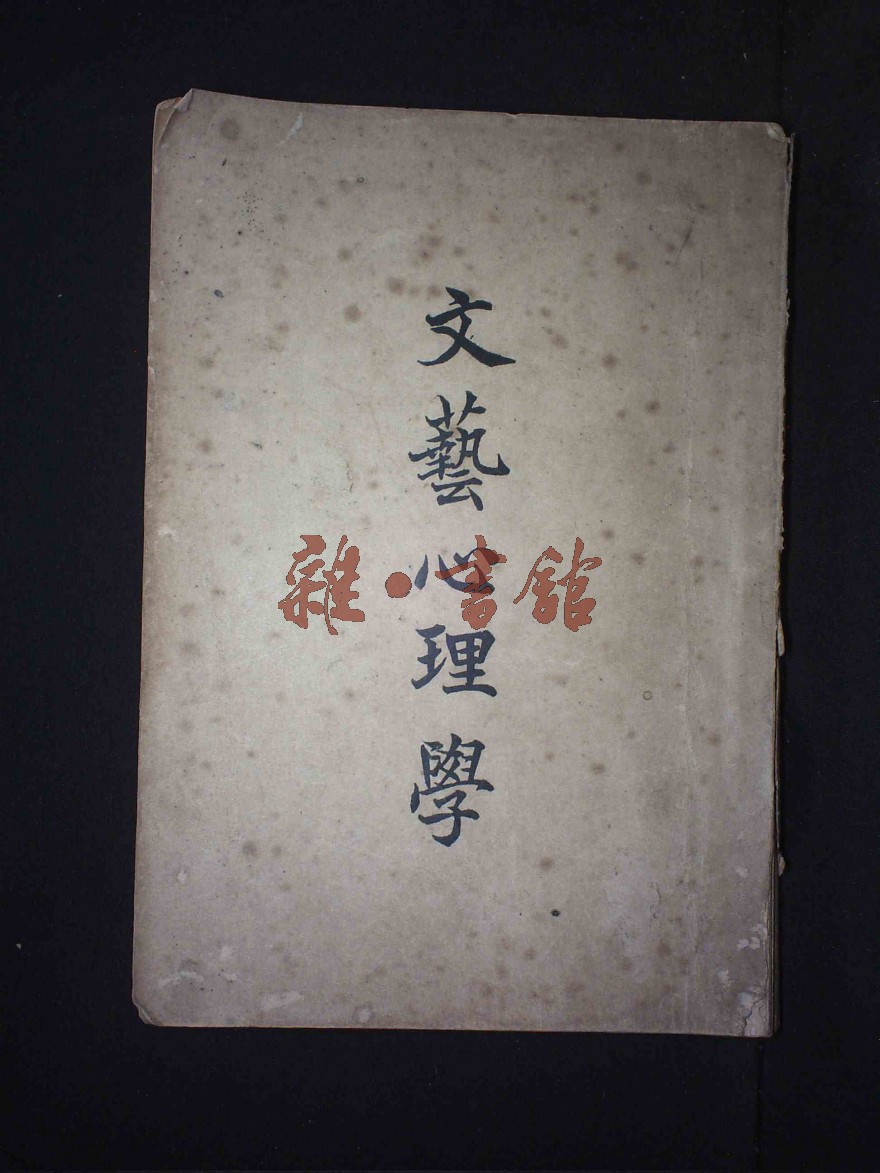 文藝心理學
雜·書館